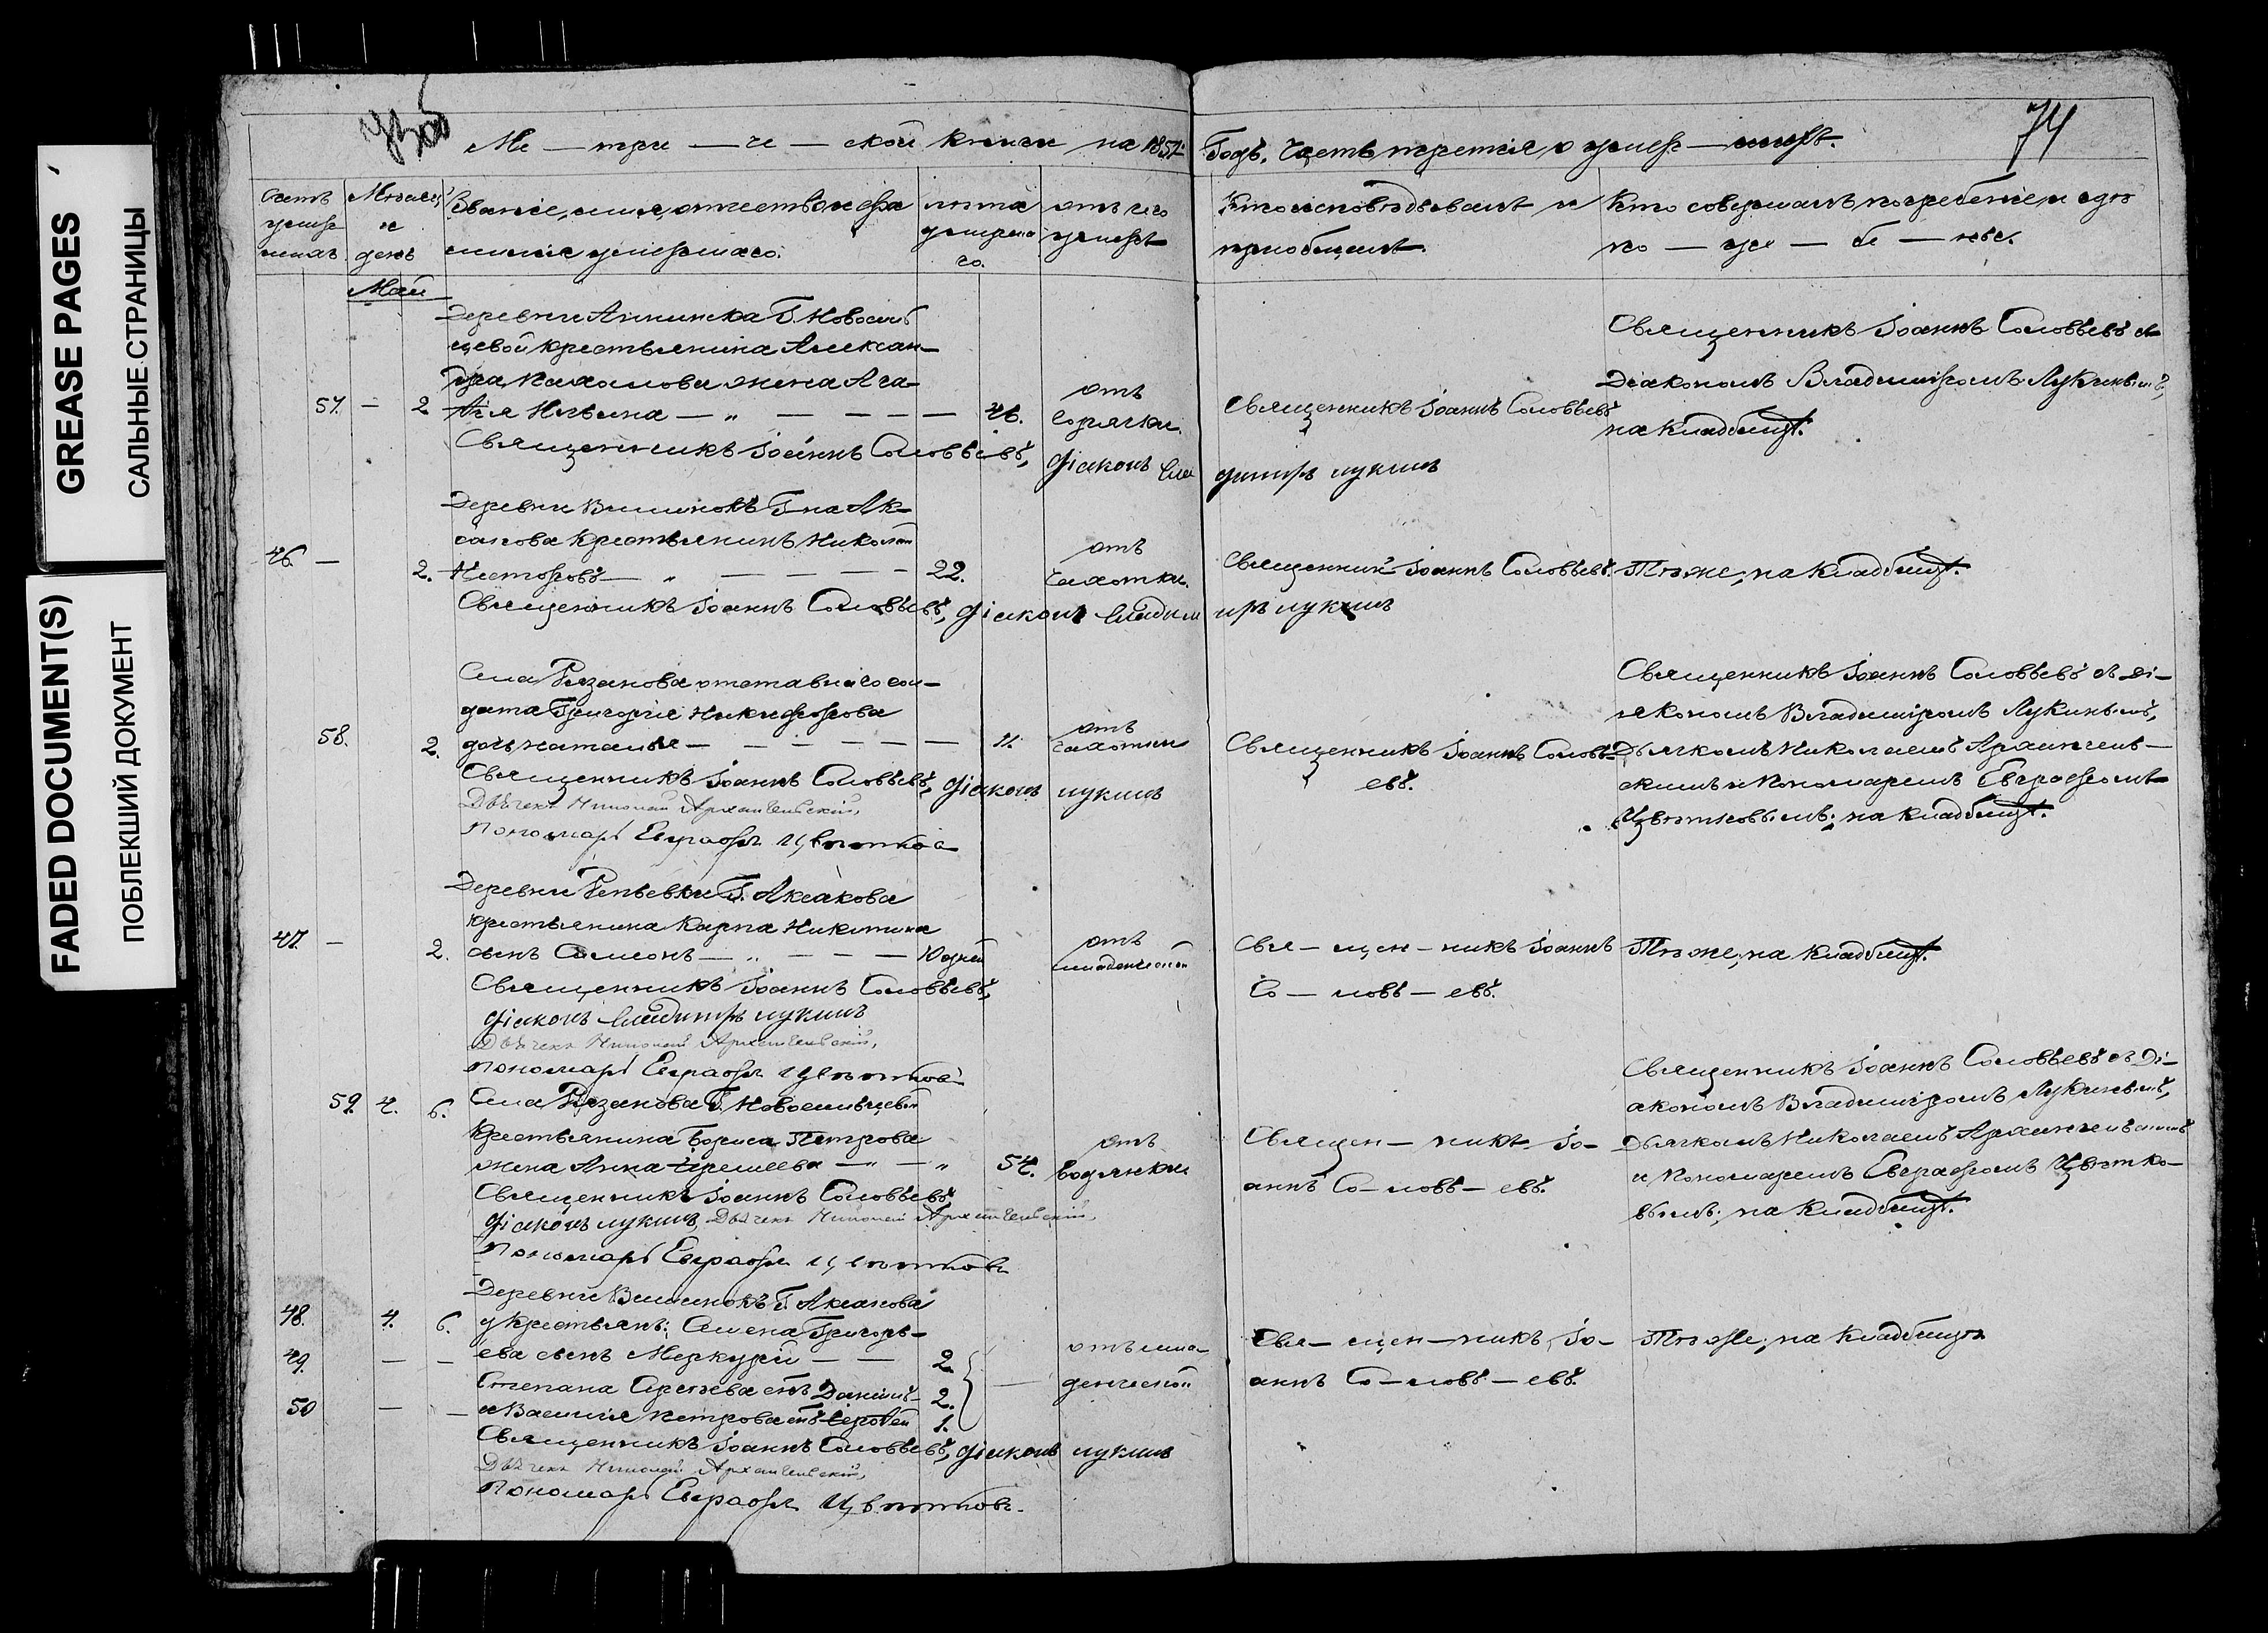 GREASE PAGES
САЛЬНЫЕ СТРАНИЦЫ
FADED DOCUMENT(S)
ПОБЛЕКШИЙ ДОКУМЕНТ
Ме — три — че — ской книги на 1851.
Годъ. Часть третія о умер — шихъ.
74
Счетъ умер шихъ.
Мѣсяцъ и день
Званіе, имя, отчество и фа
милія умершаго.
лѣта умерша го.
отъ чего умеръ
Кто исповѣдывалъ и
пріобщалъ.
Кто совершалъ погребеніе и гдѣ
по — гре — бе — ны.
Май
Деревни Аннинска Г. Новосиль
цевой крестьянина Алексан—
дра Пахомова жена Ага—
57. — 2 ѳія Ильина — „ — — — — 46. отъ горячки.
Священникъ Іоаннъ Соловьевъ
Священникъ Іоаннъ Соловьевъ съ
Діакономъ Владиміромъ Лукинымъ,
на кладбищѣ.
Священникъ Іоаннъ Соловьевъ, діаконъ Вла димиръ Лукинъ
Деревни Вишенокъ Г—на Ак—
сакова крестьянинъ Николай
46. — 2. Несторовъ — „ — — — — 22. отъ чахотки.
Священникъ Іоаннъ Соловьевъ. Тѣже; на кладбищѣ.
Священникъ Іоаннъ Соловьевъ, діаконъ Владим иръ Лукинъ
Села Рязанова отставнаго сол—
дата Григорія Никифорова
58. 2. дочь Наталья — — — — — — 11. отъ чахотки
Священникъ Іоаннъ Соловь—
евъ.
Священникъ Іоаннъ Соловьевъ съ Ді—
якономъ Владиміромъ Лукинымъ,
Дьячкомъ Николаемъ Архангель—
скимъ и Пономаремъ Евграфомъ
Цвѣтковымъ; на кладбищѣ.
Священникъ Іоаннъ Соловьевъ, діаконъ Лукинъ
Дьячекъ Николай Архангельскій,
Пономарь Евграфъ Цвѣтковъ
Деревни Репьевки Г. Аксакова
крестьянина Карпа Никитина
47. — 2. сынъ Симеонъ — „ — — — 10 дней отъ младенческой
Свя — щен — никъ Іоаннъ
Со — ловь — евъ.
Тѣже; на кладбищѣ.
Священникъ Іоаннъ Соловьевъ,
діаконъ Владимиръ Лукинъ
Дьячекъ Николай Архангельскій,
Пономарь Евграфъ Цвѣтковъ
59. 4. 6. Села Рязанова Г. Новосильцевой
крестьянина Бориса Петрова
жена Анна — „ — „ 54. отъ водянки
Священ — никъ Іо—
аннъ Со — ловь — евъ.
Священникъ Іоаннъ Соловьевъ съ Ді—
акономъ Владиміромъ Лукинымъ,
Дьячкомъ Николаемъ Архангельскимъ
и Пономаремъ Евграфомъ Цвѣтко—
вымъ; на кладбищѣ.
Священникъ Іоаннъ Соловьевъ
діаконъ Лукинъ, Дьячекъ Николай Архангельскій,
Пономарь Евграфъ Цвѣтковъ
Деревни Вишенокъ Г. Аксакова
48. 4. 6. у крестьянъ: Семена Григорь—
49. — — ева сынъ Меркурій — — 2
Степана Сергѣева снъ Даніилъ — 2.
50 — — и Василія Петрова снъ 1.
отъ мла—
денческой
Свя — щен — никъ, Іо—
аннъ Со — ловь — евъ.
Тѣже; на кладбищѣ
Священникъ Іоаннъ Соловьевъ, діаконъ Лукинъ
Дьячекъ Николай Архангельскій,
Пономарь Евграфъ Цвѣтковъ.